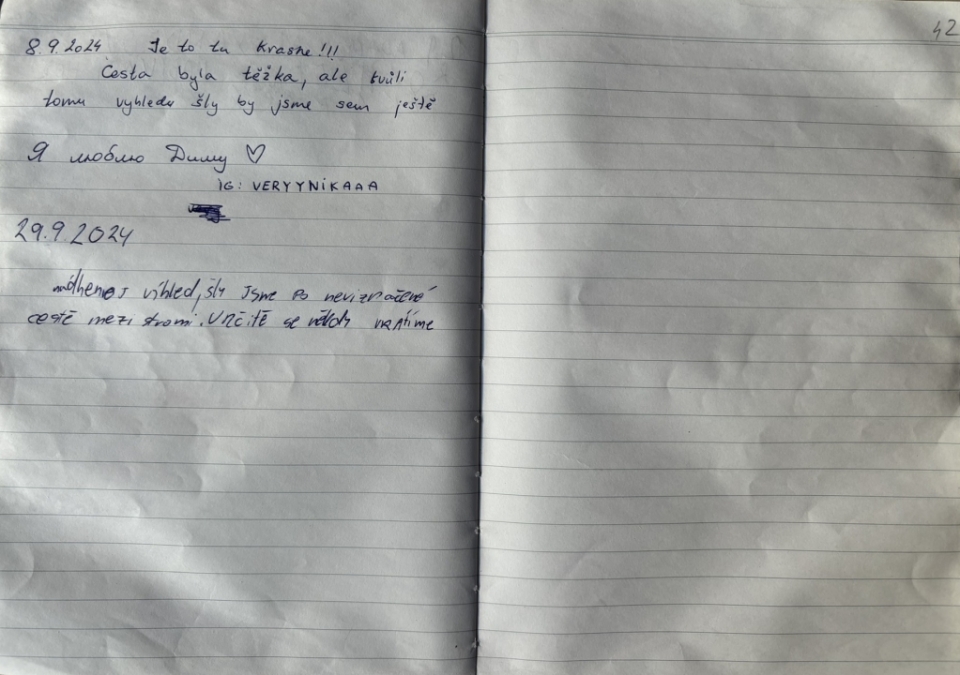 42
8.9.2024 Je to tu krasne!!!
Cesta byla těžka, ale kvůli
tomu vyhledu šly by jsme sem ještě
Я люблю Диму ♡
IG: VERYYNIKAAA
29.9.2024
výhled, šly jsme po neviznačené
cestě mezi stromi. Určitě se někdy